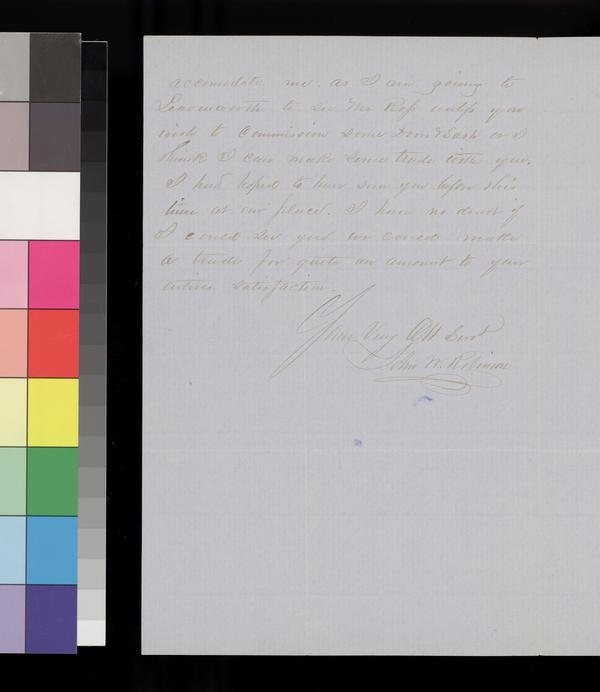 accomodate me. as I am going to
Leavenworth to see Mr Ross unless you
wish to Commission some Doors & Sash &c
think I can make some trade with you.
I had hoped to have seen you before this
time at our place. I have no doubt if
I could see you we could make
a trade for quite an amount to your
entire satisfaction.
Your Very Obt Servt
John W. Robinson